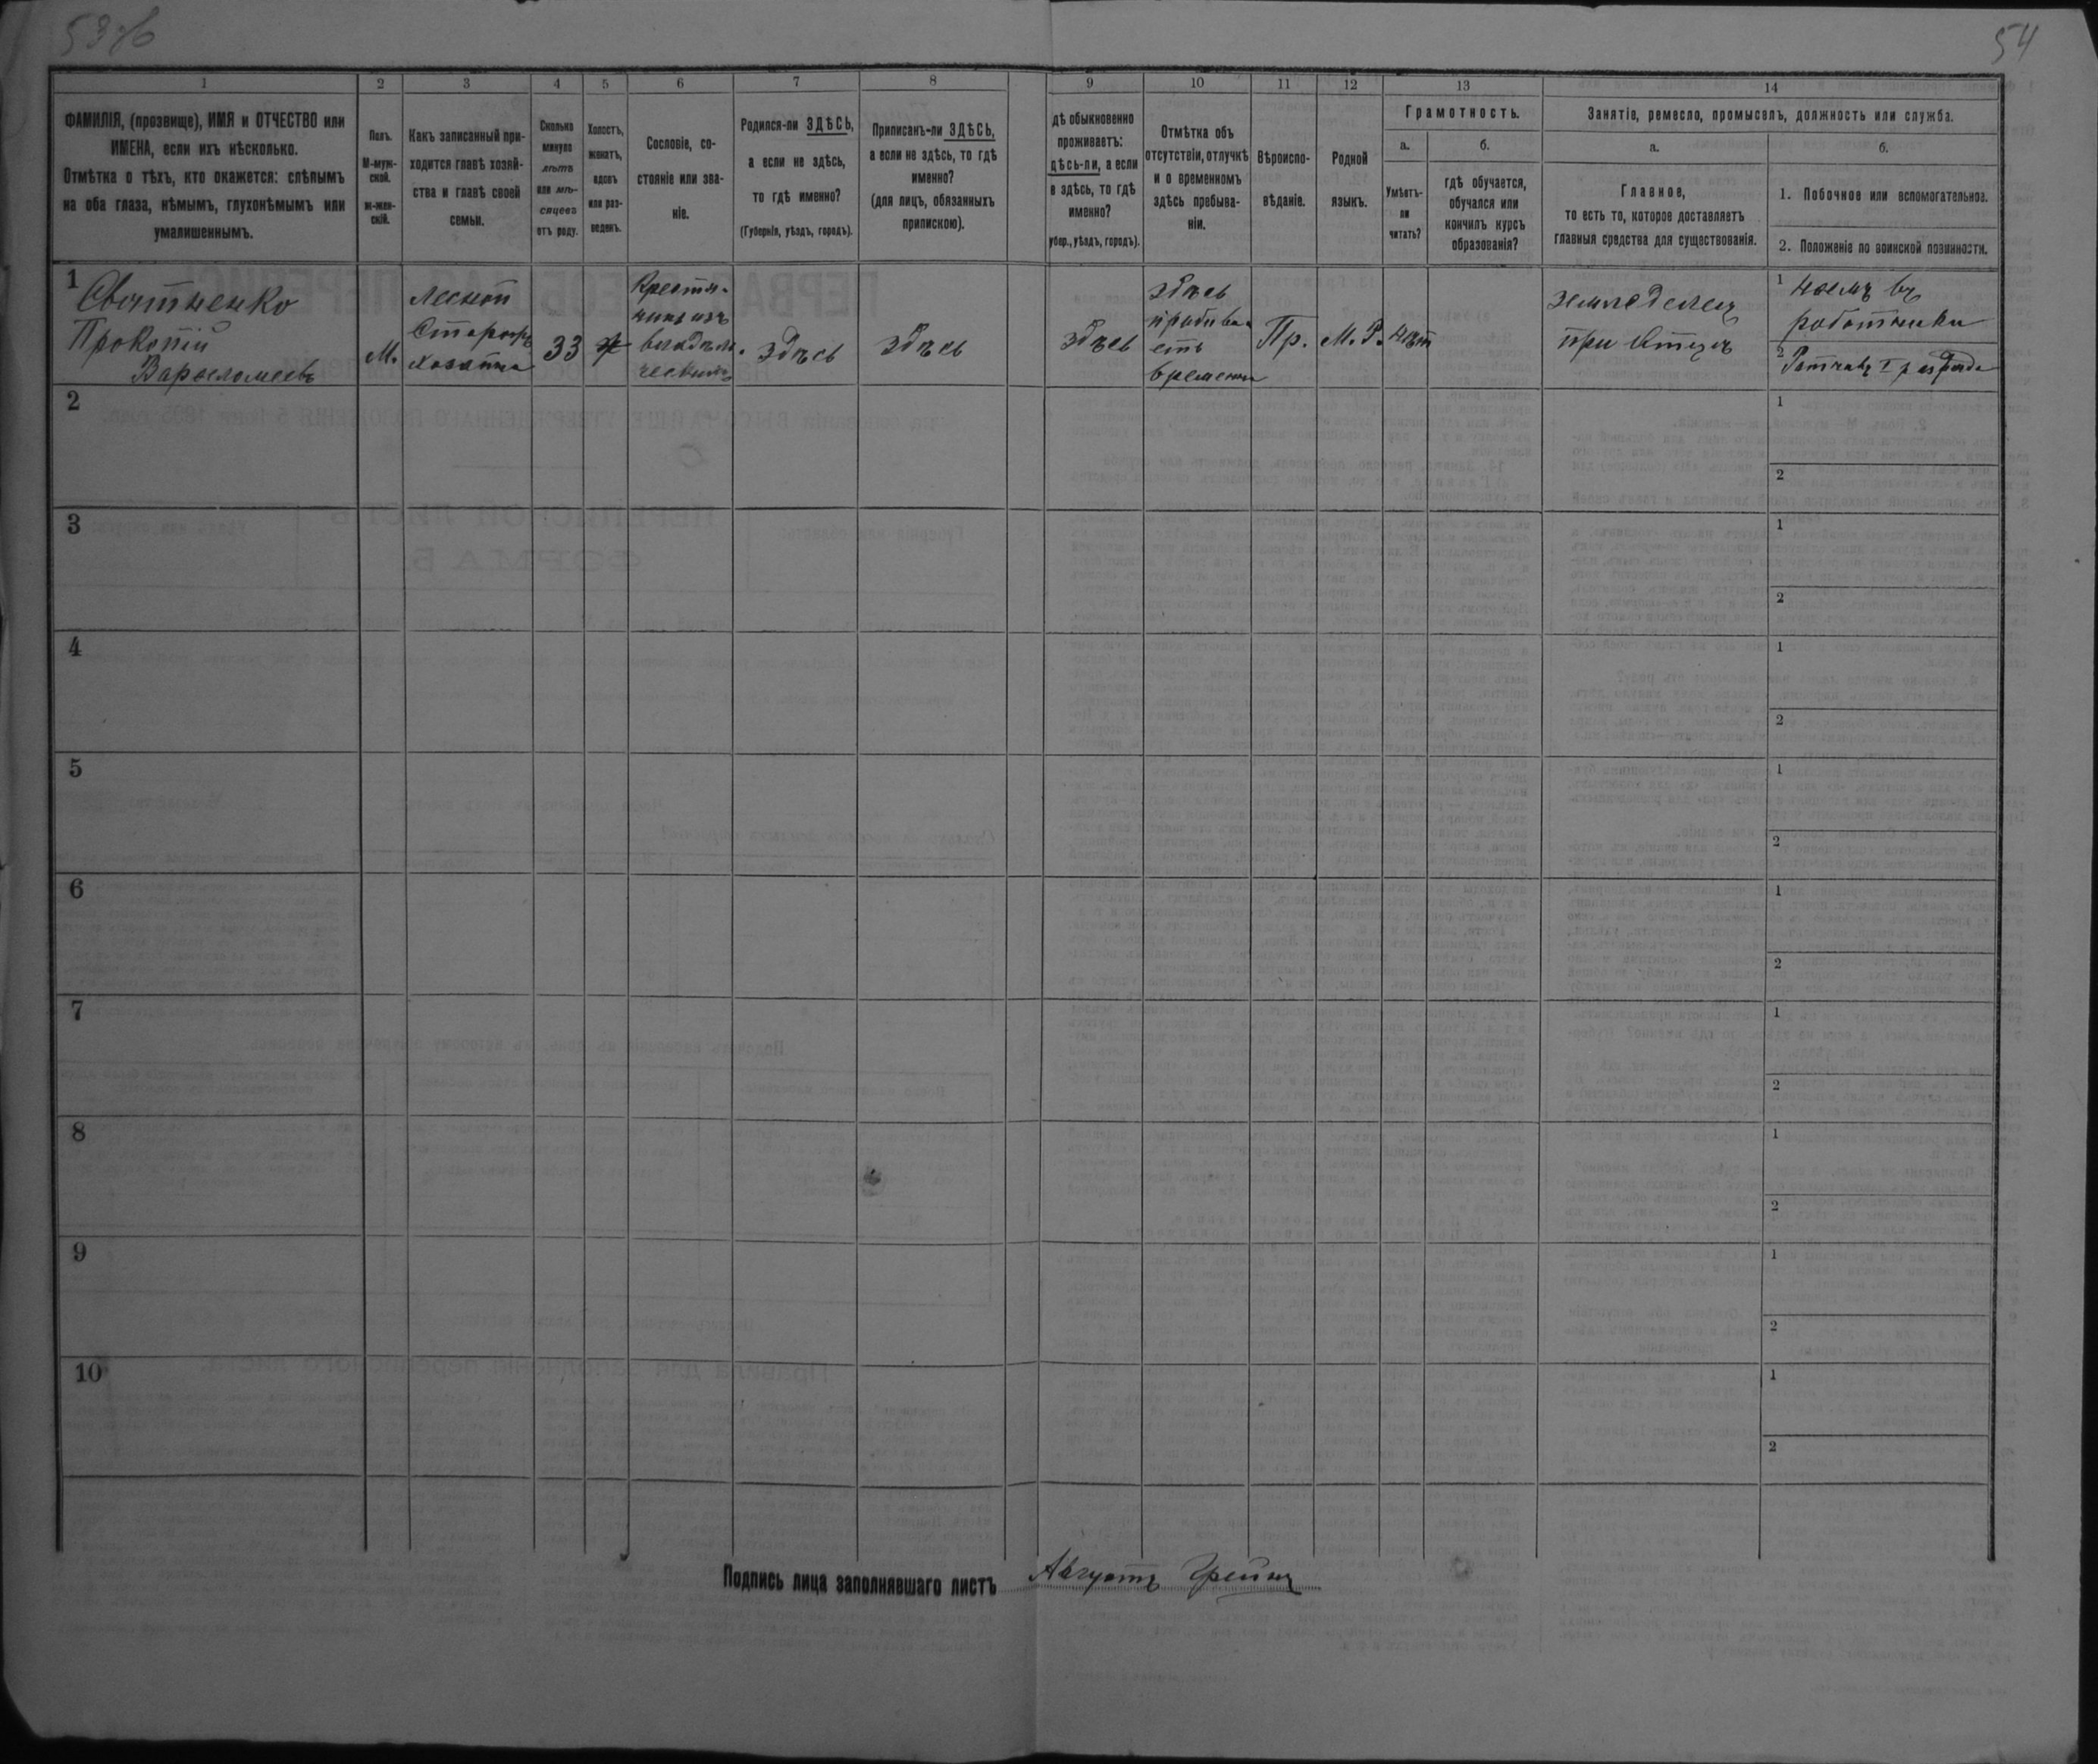 53об
54
1
2
3
4
5
6
7
8
9
10
11
12
13
14
ФАМИЛІЯ, (прозвище), ИМЯ и ОТЧЕСТВО или
ИМЕНА, если ихъ нѣсколько.
Отмѣтка о тѣхъ, кто окажется: слѣпымъ
на оба глаза, нѣмымъ, глухонѣмымъ или
умалишеннымъ.
Полъ.
М-муж-
ской.
ж-жен-
скій.
Какъ записанный при-
ходится главѣ хозяй-
ства и главѣ своей
семьи.
Сколько
минуло
лѣтъ
или мѣ-
сяцевъ
отъ роду.
Холостъ,
женатъ,
вдовъ
или раз-
веденъ.
Сословіе, со-
стояніе или зва-
ніе.
Родился-ли ЗДѢСЬ,
а если не здѣсь,
то гдѣ именно?
(Губернія, уѣздъ, городъ).
Приписанъ-ли ЗДѢСЬ,
а если не здѣсь, то гдѣ
именно?
(для лицъ, обязанныхъ
припискою).
дѣ обыкновенно
проживаетъ:
дѣсь-ли, а если
е здѣсь, то гдѣ
именно?
убер., уѣздъ, городъ).
Отмѣтка объ
отсутствіи, отлучкѣ
и о временномъ
здѣсь пребыва-
ніи.
Вѣроиспо-
вѣданіе.
Родной
языкъ.
Грамотность.
а.
Умѣетъ-
ли
читать?
б.
гдѣ обучается,
обучался или
кончилъ курсъ
образованія?
Занятіе, ремесло, промыселъ, должность или служба.
а.
Главное,
то есть то, которое доставляетъ
главныя средства для существованія.
б.
1. Побочное или вспомогательное.
2. Положеніе по воинской повинности.
1
Святненко
Прокопій
М.
Лесной
Сторожъ
хозяина
33
ж
Крестья-
нинъ изъ
владѣль-
ческихъ
здѣсь
здѣсь
здѣсь
здѣсь
пребыва
етъ
временно
Пр.
М. Р.
нѣт
земледелец
при Отцѣ
1
наемъ въ
работники
2 Ратникъ I разряда
2
1
2
3
1
2
4
1
2
5
1
2
6
1
2
7
1
2
8
1
2
9
1
2
10
1
2
Подпись лица заполнявшаго листъ
Августъ